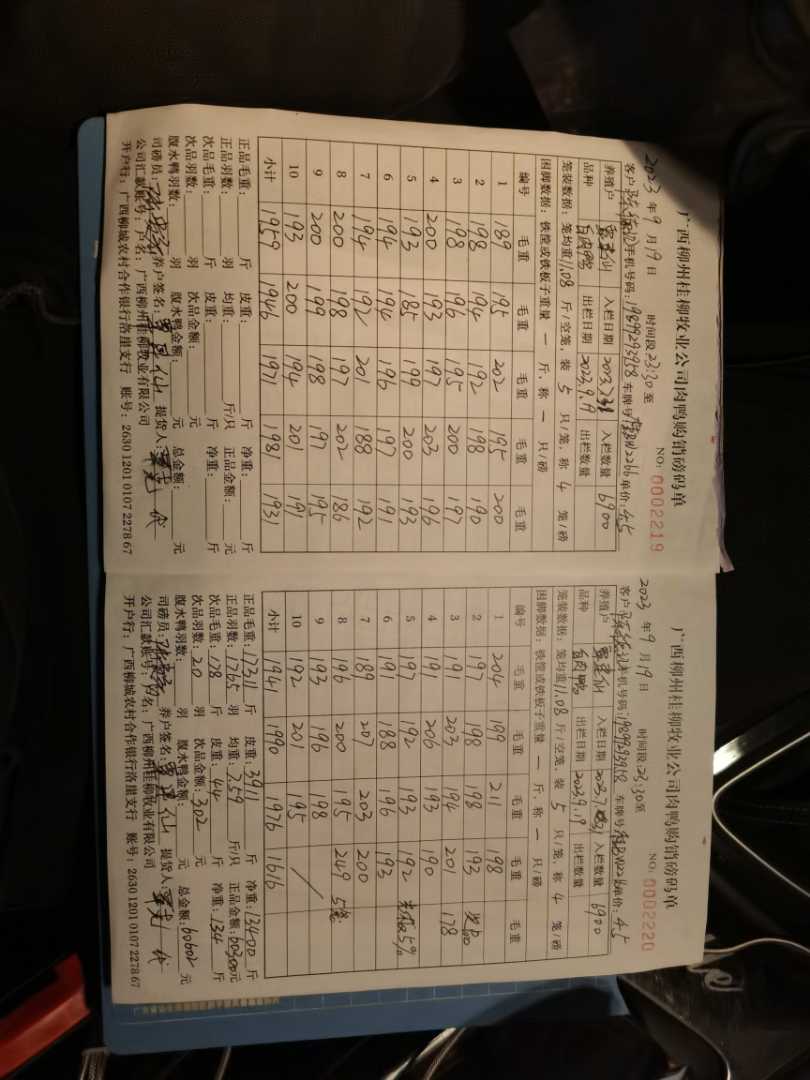 广西柳州桂柳牧业公司肉鸭购销磅码单
NO: 0002219
2023 年 9 月 19 日 时间段 23:30 至
客户 手机号码: 19899293958 车牌号 单价: 4.5
养殖户 入栏日期 入栏数量 6900
品种 白肉鸭 出栏日期 2023.9.19 出栏数量
笼装数据: 笼均重 11.08 斤/空笼, 装 5 只/笼, 称 4 笼/磅
困脚数据: 铁筐或铁板子重量 一 斤, 称 一 只/磅
编号 毛重 毛重 毛重 毛重 毛重
1 189 195 202 195 200
2 198 194 192 198 190
3 198 196 195 200 197
4 200 193 197 203 196
5 193 185 199 200 193
6 194 194 196 197 191
7 194 192 201 188 192
8 200 198 197 202 186
9 200 199 198 197 195
10 193 200 194 201 191
小计 1959 1946 1971 1981 1931
正品毛重: 斤 皮重: 斤 净重: 斤
正品羽数: 羽 均重: 斤/只 正品金额: 元
次品毛重: 斤 皮重: 斤 净重: 斤
次品羽数: 羽 次品金额: 元
腹水鸭羽数: 羽 腹水鸭金额: 元 总金额: 元
司磅员: 养户签名: 提货人:
公司汇款账号: 户名: 广西柳州桂柳牧业有限公司
开户行: 广西柳城农村合作银行洛崖支行 账号: 2630 1201 0107 2278 67
广西柳州桂柳牧业公司肉鸭购销磅码单
NO: 0002220
2023 年 9 月 19 日 时间段: 23:30 至
客户 手机号码: 19899293958 车牌号 单价: 4.5
养殖户 入栏日期 入栏数量 6900
品种 白肉鸭 出栏日期 2023.9.19 出栏数量
笼装数据: 笼均重 11.08 斤/空笼, 装 5 只/笼, 称 4 笼/磅
困脚数据: 铁筐或铁板子重量 一 斤, 称 一 只/磅
编号 毛重 毛重 毛重 毛重 毛重
1 204 199 211 198
2 197 198 198 193 次品
3 191 203 194 201 178
4 191 206 193 190
5 197 192 193 192 5%
6 191 188 196 193
7 189 207 203 200
8 196 200 195 249 5笼
9 193 196 198
10 192 201 195
小计 1941 1990 1976 1616
正品毛重: 17311 斤 皮重: 3911 斤 净重: 13400 斤
正品羽数: 1765 羽 均重: 7.59 斤/只 正品金额: 60300 元
次品毛重: 178 斤 皮重: 44 斤 净重: 134 斤
次品羽数: 20 羽 次品金额: 302 元
腹水鸭羽数: 羽 腹水鸭金额: 元 总金额: 60602 元
司磅员: 养户签名: 提货人:
公司汇款账号: 户名: 广西柳州桂柳牧业有限公司
开户行: 广西柳城农村合作银行洛崖支行 账号: 2630 1201 0107 2278 67